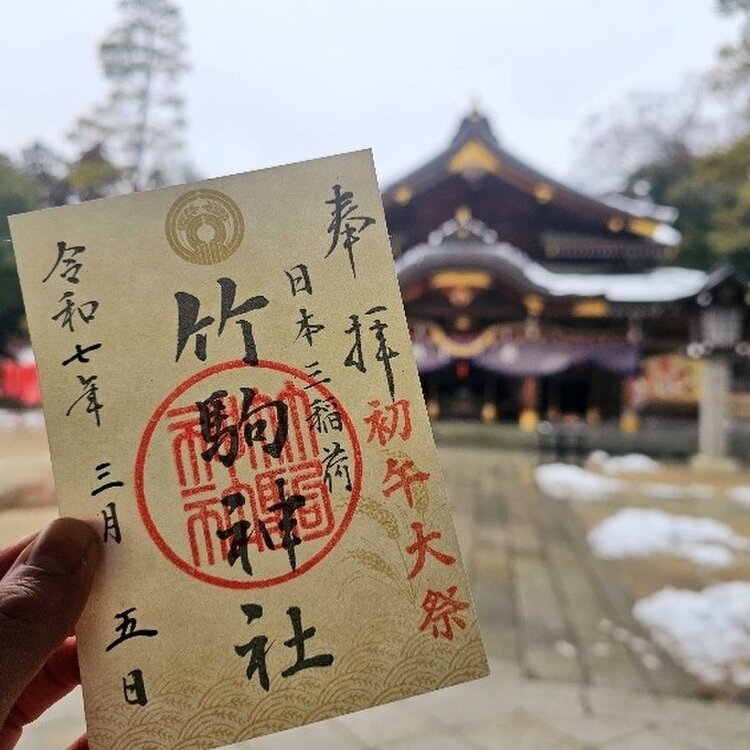 奉拝
初午大祭
日本三稲荷
竹駒神社
竹駒神社
令和七年三月五日